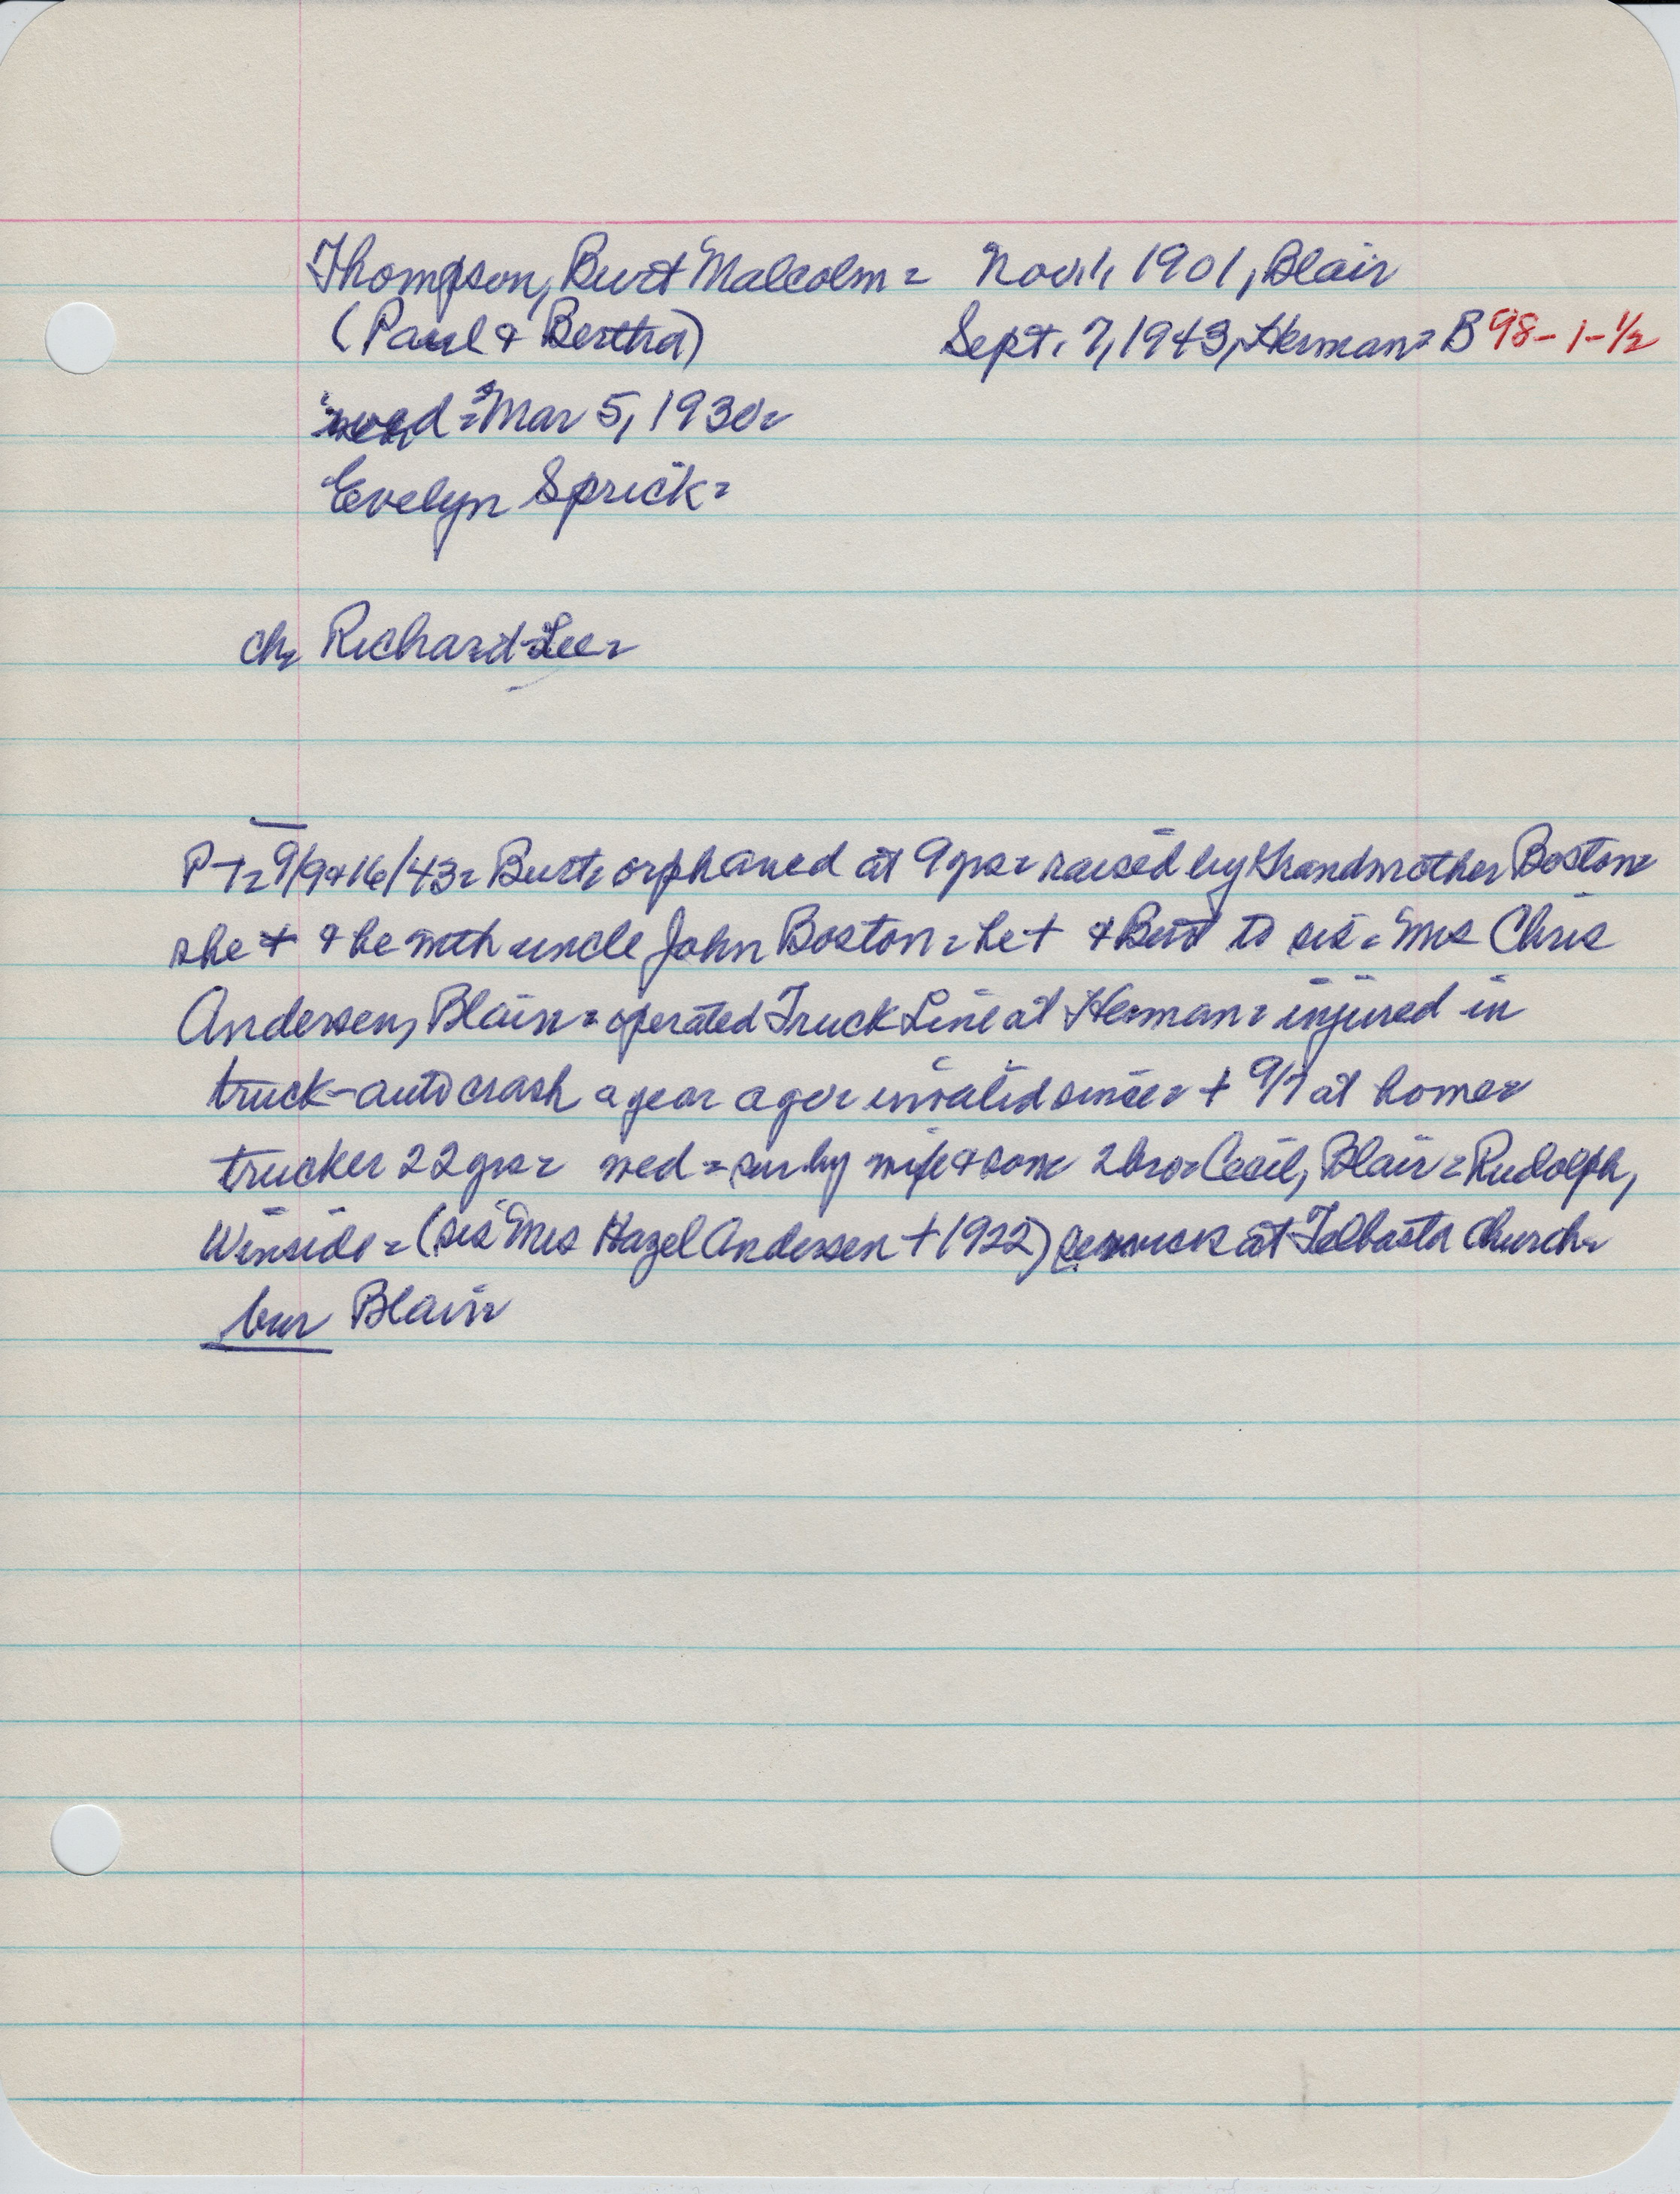 Thompson, Burt Malcolm = Nov. 1, 1901, Blair
(Paul & Bertha) Sept. 7, 1943, Herman = B 98-1-½
wed = Mar 5, 1930 =
Evelyn Sprick =
ch = Richard Lee =
P-T = 9/9 & 16/43 = Burt = orphaned at 9 yrs = raised by Grandmother Boston =
she + & he with uncle John Boston = he + & Burt to sis = Mrs Chris
Andersen, Blair = operated Truck Line at Herman = injured in
truck-auto crash a year ago = invalid since = + 9/7 at home =
trucker 22 yrs = wed = sur by wife & son = 2 bro = Cecil, Blair = Rudolph,
Winside = (sis Mrs Hazel Andersen + 1922) services at Telbasta Church =
bur Blair =